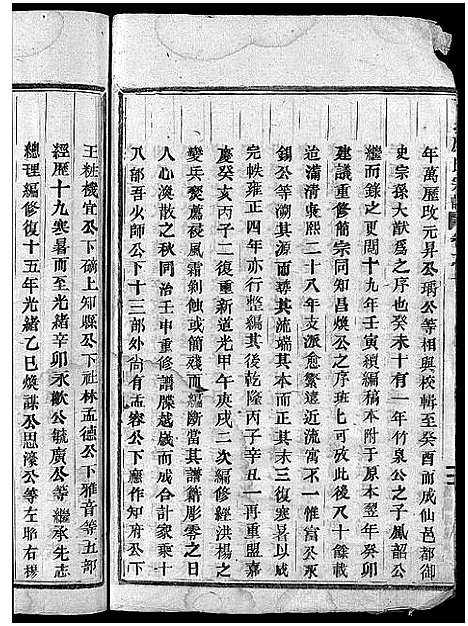 年萬歷改元昇公瑀公等相與校輯至癸酉而成仙邑部御
史宗孫大猷爲之序也癸未十有一年竹泉公之子鳳韶公
繼而錄之更閱十九年壬寅續編稿本附于原本翌年癸卯
建議重修簡宗同知昌煥公之序班七可放此後八十餘載
迨滿清康熙二十八年支派愈繁遠近流寓不一惟當公永
錫公等溯其源而尋其流端其本而正其末三復寒暑以成
完帙雍正四年亦行整編其後乾隆丙子辛丑一再重盟嘉
慶癸亥丙子二復重新道光甲午庚戌二次編修經洪楊之
變兵燹薦祲風霜剝蝕或簡殘而編斷當其譜籍彫零之日
人心渙散之秋同治壬申重修譜牒越歲而成合計家乘十
八部吾火師公下十三部外尚有孟容公下應作知府公下
王桂機宜公下礄上知縣公下社林孟德公下雅音等五部
經歷十九寒暑而至光緒辛卯永歡公毓廣公等繼承先志
總理編修復十五年光緒乙巳煥謀公思濠公等左昭右穆